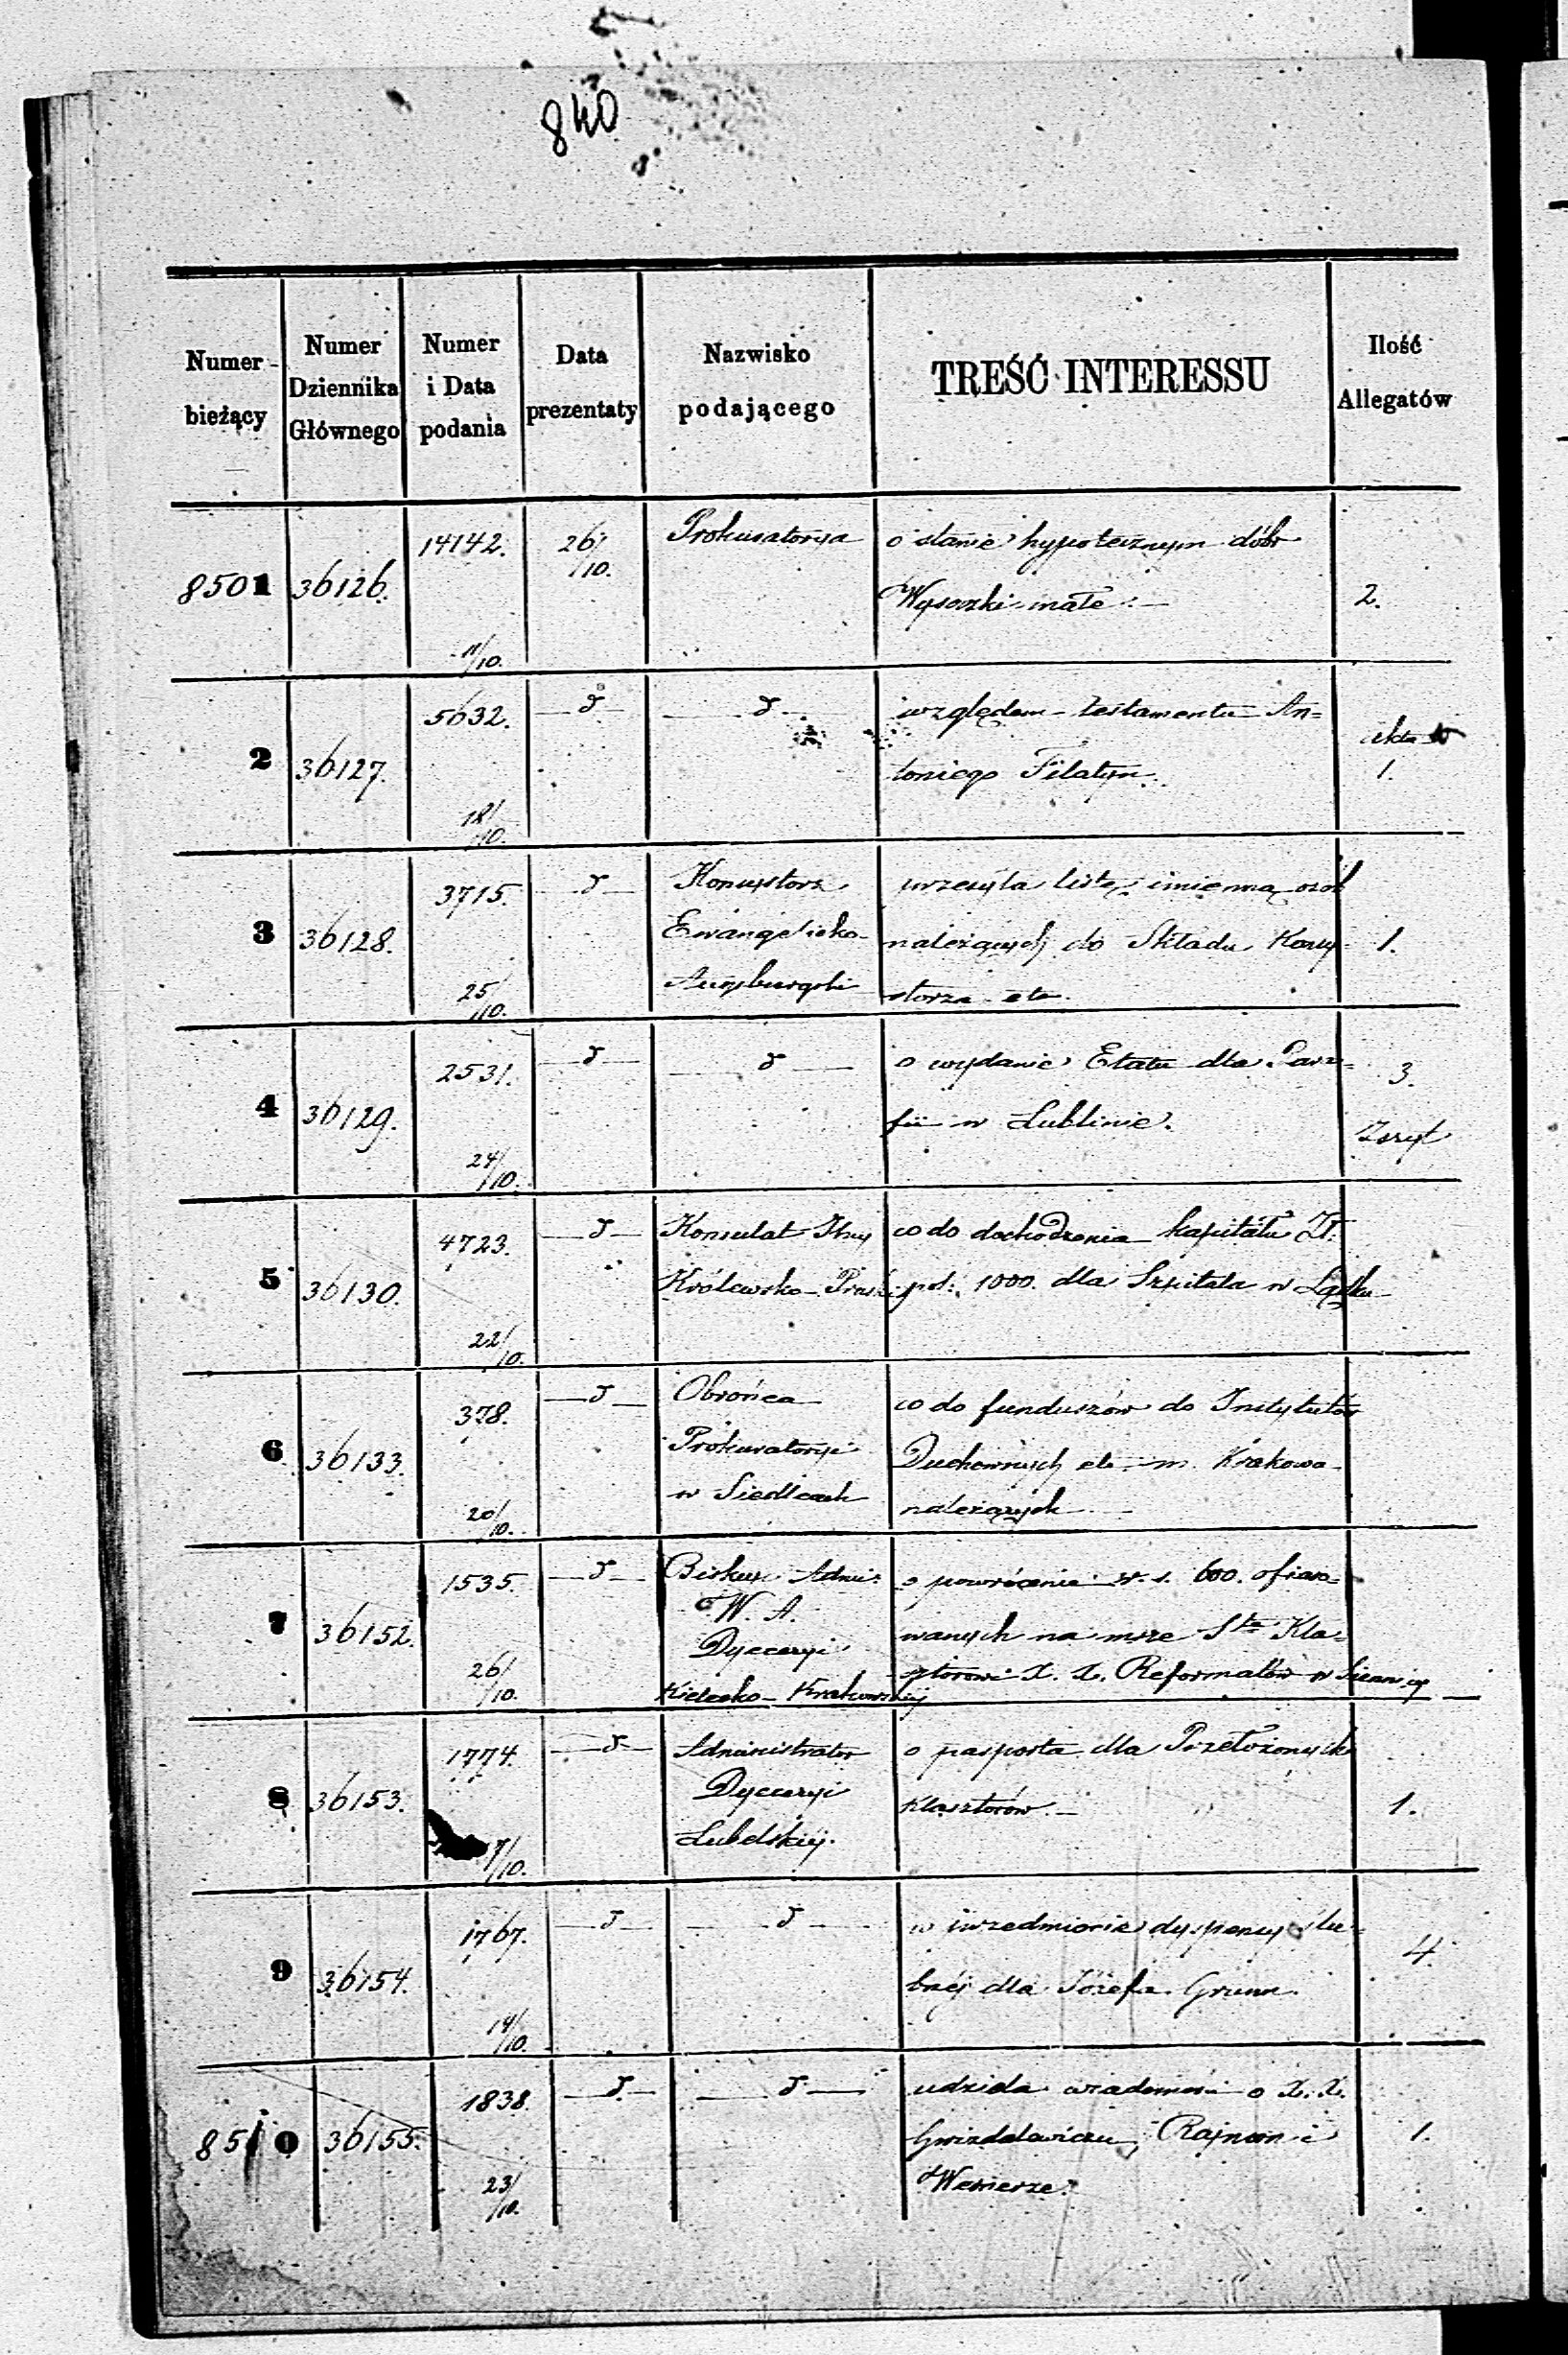 840
Numer bieżący
Numer Dziennika Głównego
Numer i Data podania
Data prezentaty
Nazwisko podającego
TREŚĆ INTERESSU
Ilość Allegatów
8501 36126. 14142. 11/10. 26/10. Prokuratorya
o stanie hypotecznym dóbr
Wysoczki małe
2.
2 36127. 5632. 18/10. d° d°
względem testamentu An=
toniego Filatyn.
akta
1.
3 36128. 3715. 25/10. d°
Konsystorz
Ewangelicko-
Augsburgski
przesyła listę imienną osób
należących do Składu Konsy=
storza etc.
1.
4 36129. 2531. 24/10. d° d°
o wydanie Etatu dla Para=
fii w Lublinie.
3.
Zeszyt
5 36130. 4723. 22/10. d°
Konsulat
Królewsko-Prusk:
co do dochodzenia kapitału Zł.
pol: 1000. dla Szpitala w
6 36133. 378. 20/10. d°
Obrońca
Prokuratoryi
w Siedlcach
co do funduszów do Instytutów
Duchownych etc. m. Krakowa
należących
7 36152. 1535. 26/10. d°
Biskup Admi:
W. A.
Dyecezyi
Kielecko-Krakowskiej
o powrócenie 600. ofiaro=
wanych na msze Ste Kla=
sztorowi X. X. Reformatów w
8 36153. 1774. 7/10. d°
Administrator
Dyecezyi
Lubelskiej.
o pasporta dla Przełożonych
Klasztorów.
1.
9 36154. 1767. 14/10. d° d°
w przedmiocie dyspensy ślu=
bnéj dla Józefa Grunn.
4.
8510 36155. 1838. 23/10. d° d°
udziela wiadomości o X. X.
i
1.